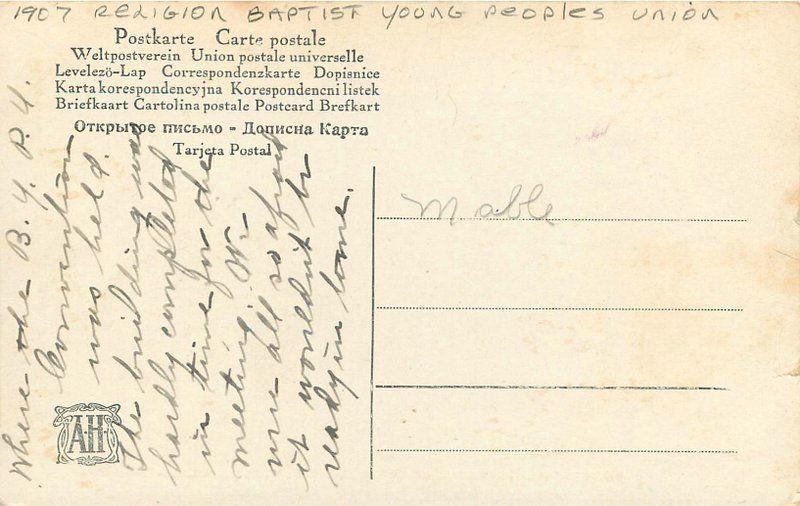 1907 RELIGION BAPTIST YOUNG PEOPLES UNION
Postkarte Carte postale
Weltpostverein Union postale universelle
Levelezö-Lap Correspondenzkarte Dopisnice
Karta korespondencyjna Korespondencni listek
Briefkaart Cartolina postale Postcard Brefkart
Открытое письмо - Дописна Карта
Tarjeta Postal
Where the B. Y. P. U.
Convention
was held.
The building was
hardly completed
in time for the
meeting. We
were all so afraid
it wouldn't be
ready in time.
Mable
A.H.